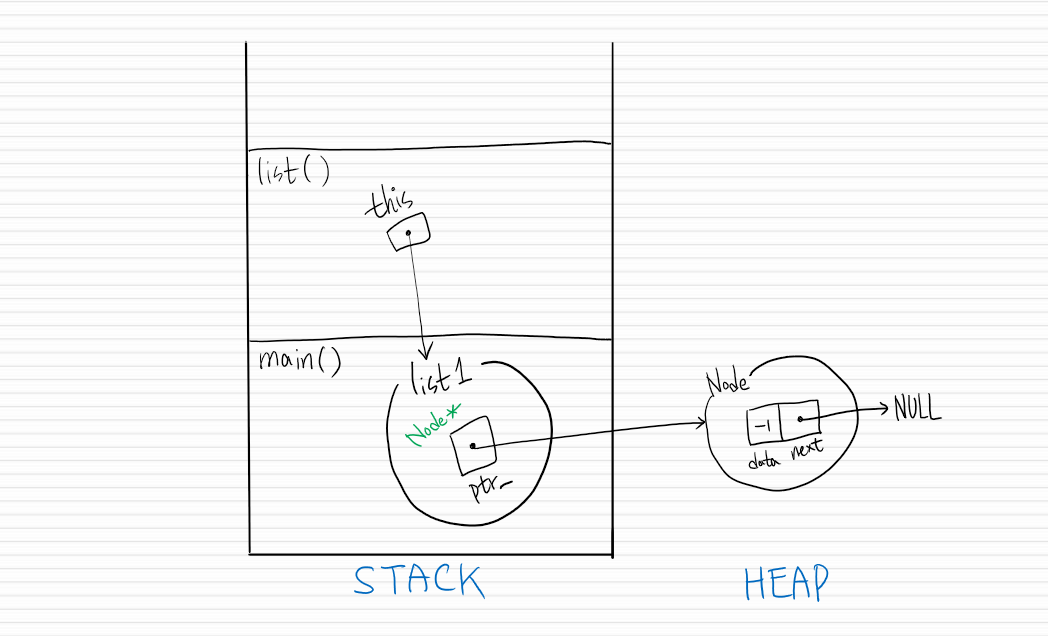 list()
this
main()
list1
Node*
ptr_
Node
-1
data next
NULL
STACK
HEAP